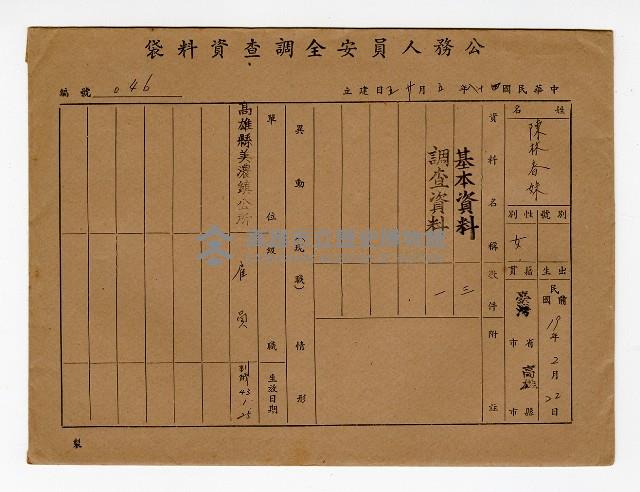 公務人員安全調查資料袋
編號 046
中華民國四十八年五月廿五日建立
姓名
陳林春妹
別號 性別
女
出生 籍貫
民國前19年2月22日
臺灣省 市
高雄縣 市
資料名稱 件數 附註
基本資料 三
調查資料 一
異動(現職)情形
單位 級職 生效日期
高雄縣美濃鎮公所 雇員 到職 43.1.25
高雄市立歷史博物館
製